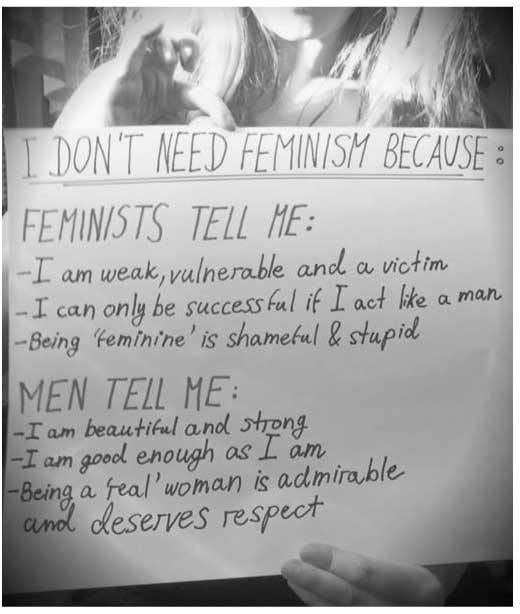 I DON'T NEED FEMINISM BECAUSE:
FEMINISTS TELL ME:
-I am weak, vulnerable and a victim
-I can only be successful if I act like a man
-Being 'feminine' is shameful & stupid
MEN TELL ME:
-I am beautiful and strong
-I am good enough as I am
-Being a 'real' woman is admirable
and deserves respect